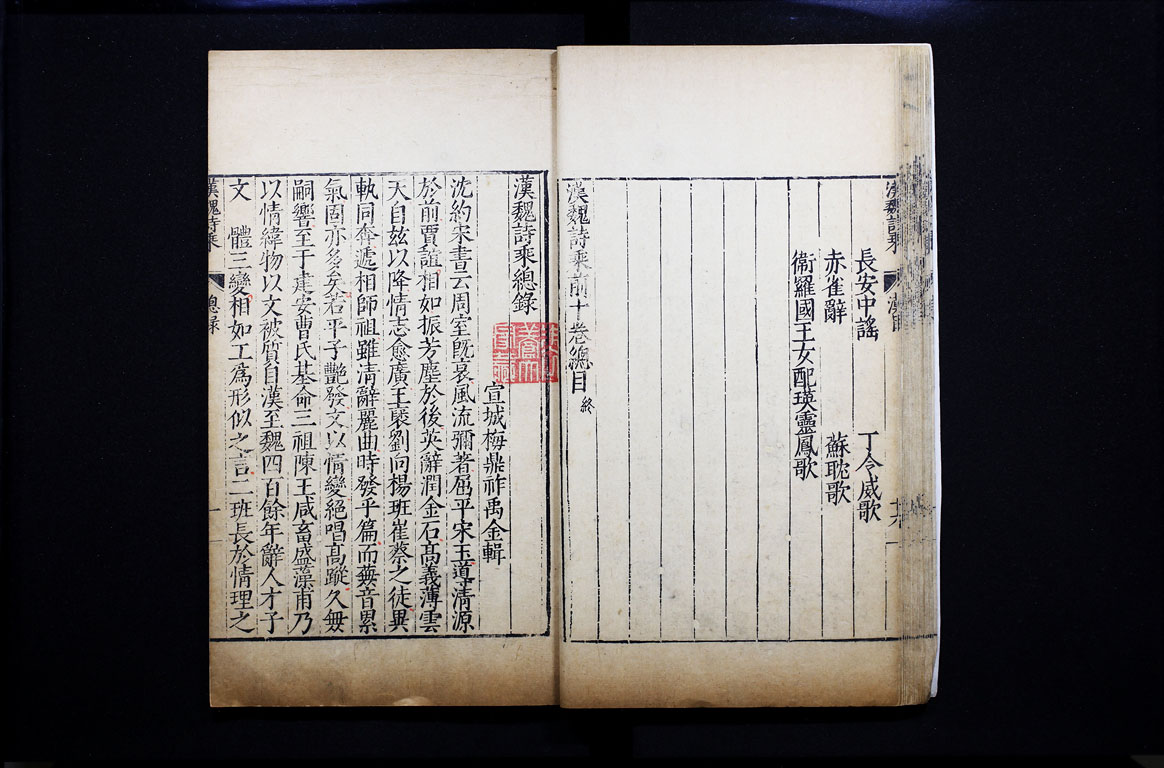 漢魏詩乘
漢目
長安中謠 丁令威歌
赤雀辭 蘇耽歌
衞羅國王女配瑛靈鳳歌
漢魏詩乘前十卷總目終
漢魏詩乘總錄
宣城梅鼎祚禹金輯
沈約宋書云周室旣衰風流彌著屈平宋玉導清源
於前賈誼相如振芳塵於後英辭潤金石高義薄雲
天自玆以降情志愈廣王襃劉向楊班崔蔡之徒異
軌同奔遞相師祖雖清辭麗曲時發乎篇而蕪音累
氣固亦多矣若平子艷發文以情變絕唱高蹤久無
嗣響至于建安曹氏基命三祖陳王咸畜盛藻甫乃
以情緯物以文被質自漢至魏四百餘年辭人才子
文 體三變相如工爲形似之言二班長於情理之
漢魏詩乘
總錄
一